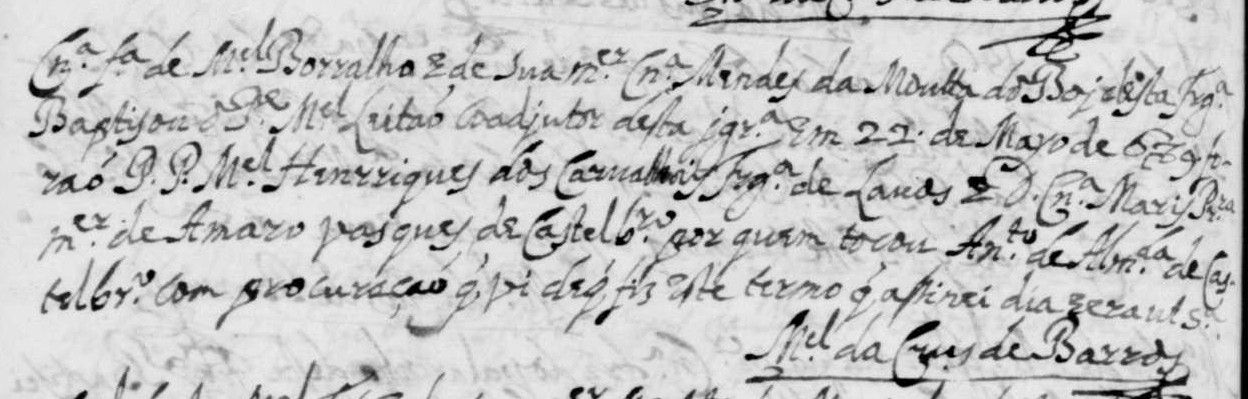 Cn.ª f.ª de M.el Borralho e de sua m.er Cn.ª Mendes da Moutta do Bojo desta frg.ª
Baptisou o P.e M.el Leitaõ Coadjutor desta jgr.ª em 22. de Mayo de 679 fo-
raõ P.P. M.el Henrriques dos Carualhais frg.ª de Lauos e D. Cn.ª Maris Pr.ra
m.er de Amaro vasques de Castelbr.º por quem tocou An.to de Alm.da de Cas-
telbr.º com procuraçaõ q̃ vi de q̃ fis este termo q̃ assinei dia e era ut s.ª
M.el da Crus de Barros